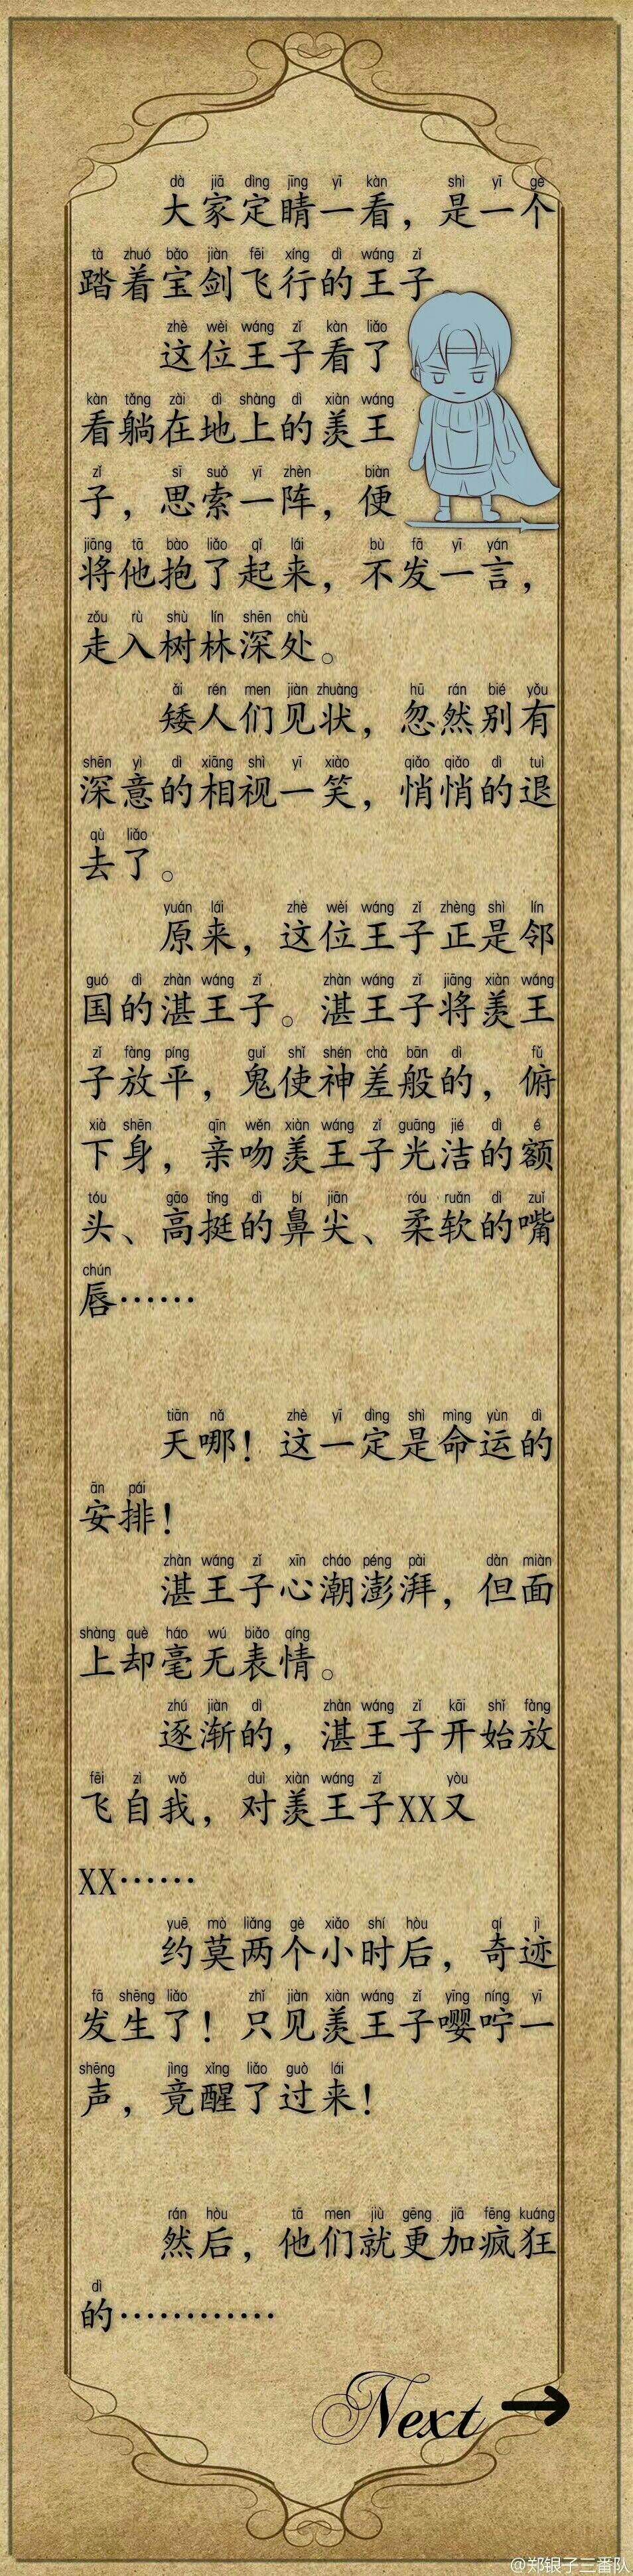 dà jiā dìng jīng yī kàn shì yī gè
大家定睛一看，是一个
tà zhuó bǎo jiàn fēi xíng dì wáng zǐ
踏着宝剑飞行的王子
zhè wèi wáng zǐ kàn liǎo
这位王子看了
kàn tǎng zài dì shàng dì xiàn wáng
看躺在地上的羡王
zǐ sī suǒ yī zhèn biàn
子，思索一阵，便
jiāng tā bào liǎo qǐ lái bù fā yī yán
将他抱了起来，不发一言，
zǒu rù shù lín shēn chù
走入树林深处。
ǎi rén men jiàn zhuàng hū rán bié yǒu
矮人们见状，忽然别有
shēn yì dì xiāng shì yī xiào qiǎo qiǎo dì tuì
深意的相视一笑，悄悄的退
qù liǎo
去了。
yuán lái zhè wèi wáng zǐ zhèng shì lín
原来，这位王子正是邻
guó dì zhàn wáng zǐ zhàn wáng zǐ jiāng xiàn wáng
国的湛王子。湛王子将羡王
zǐ fàng píng guǐ shǐ shén chà bān dì fǔ
子放平，鬼使神差般的，俯
xià shēn qīn wěn xiàn wáng zǐ guāng jié dì é
下身，亲吻羡王子光洁的额
tóu gāo tǐng dì bí jiān róu ruǎn dì zuǐ
头、高挺的鼻尖、柔软的嘴
chún
唇……
tiān nǎ zhè yī dìng shì mìng yùn dì
天哪！这一定是命运的
ān pái
安排！
zhàn wáng zǐ xīn cháo péng pài dàn miàn
湛王子心潮澎湃，但面
shàng què háo wú biǎo qíng
上却毫无表情。
zhú jiàn dì zhàn wáng zǐ kāi shǐ fàng
逐渐的，湛王子开始放
fēi zì wǒ duì xiàn wáng zǐ yòu
飞自我，对羡王子XX又
XX……
yuē mò liǎng gè xiǎo shí hòu qí jì
约莫两个小时后，奇迹
fā shēng liǎo zhǐ jiàn xiàn wáng zǐ yīng níng yī
发生了！只见羡王子嘤咛一
shēng jìng xǐng liǎo guò lái
声，竟醒了过来！
rán hòu tā men jiù gēng jiā fēng kuáng
然后，他们就更加疯狂
dì
的…………
Next →
@郑银子三番队